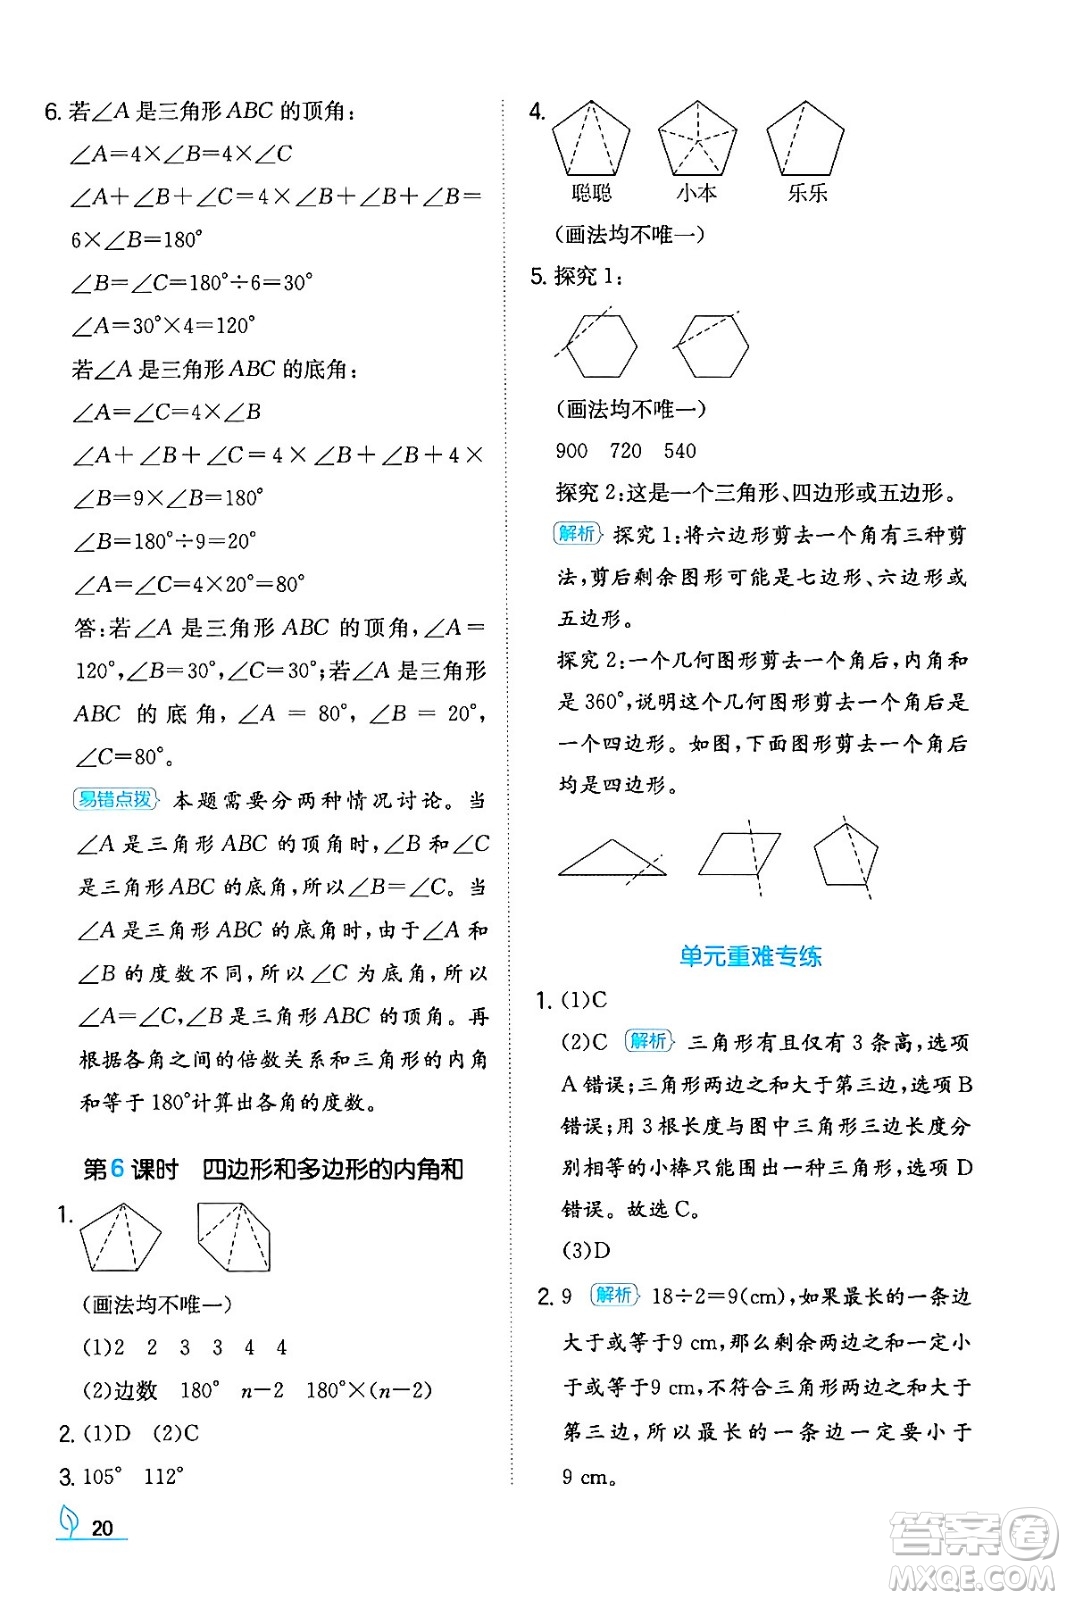 6. 若∠A是三角形ABC的顶角:
∠A=4×∠B=4×∠C
∠A+∠B+∠C=4×∠B+∠B+∠B=
6×∠B=180°
∠B=∠C=180°÷6=30°
∠A=30°×4=120°
若∠A是三角形ABC的底角:
∠A=∠C=4×∠B
∠A+∠B+∠C=4×∠B+∠B+4×
∠B=9×∠B=180°
∠B=180°÷9=20°
∠A=∠C=4×20°=80°
答:若∠A是三角形ABC的顶角,∠A=
120°,∠B=30°,∠C=30°;若∠A是三角形
ABC的底角,∠A=80°,∠B=20°,
∠C=80°。
易错点拨 本题需要分两种情况讨论。当
∠A是三角形ABC的顶角时,∠B和∠C
是三角形ABC的底角,所以∠B=∠C。当
∠A是三角形ABC的底角时,由于∠A与
∠B的度数不同,所以∠C为底角,所以
∠A=∠C,∠B是三角形ABC的顶角。再
根据各角之间的倍数关系和三角形的内角
和等于180°计算出各角的度数。
第6课时 四边形和多边形的内角和
1.
(画法均不唯一)
(1)2 2 3 3 4 4
(2)边数 180° n-2 180°×(n-2)
2. (1)D (2)C
3. 105° 112°
20
4.
聪聪 小本 乐乐
(画法均不唯一)
5. 探究1:
(画法均不唯一)
900 720 540
探究2:这是一个三角形、四边形或五边形。
解析 探究1:将六边形剪去一个角有三种剪
法,剪后剩余图形可能是七边形、六边形或
五边形。
探究2:一个几何图形剪去一个角后,内角和
是360°,说明这个几何图形剪去一个角后是
一个四边形。如图,下面图形剪去一个角后
均是四边形。
单元重难专练
1. (1)C
(2)C 解析 三角形有且仅有3条高,选项
A错误;三角形两边之和大于第三边,选项B
错误;用3根长度与图中三角形三边长度分
别相等的小棒只能围出一种三角形,选项D
错误。故选C。
(3)D
2. 9 解析 18÷2=9(cm),如果最长的一条边
大于或等于9 cm,那么剩余两边之和一定小
于或等于9 cm,不符合三角形两边之和大于
第三边,所以最长的一条边一定要小于
9 cm。
答案卷
MXQE.COM